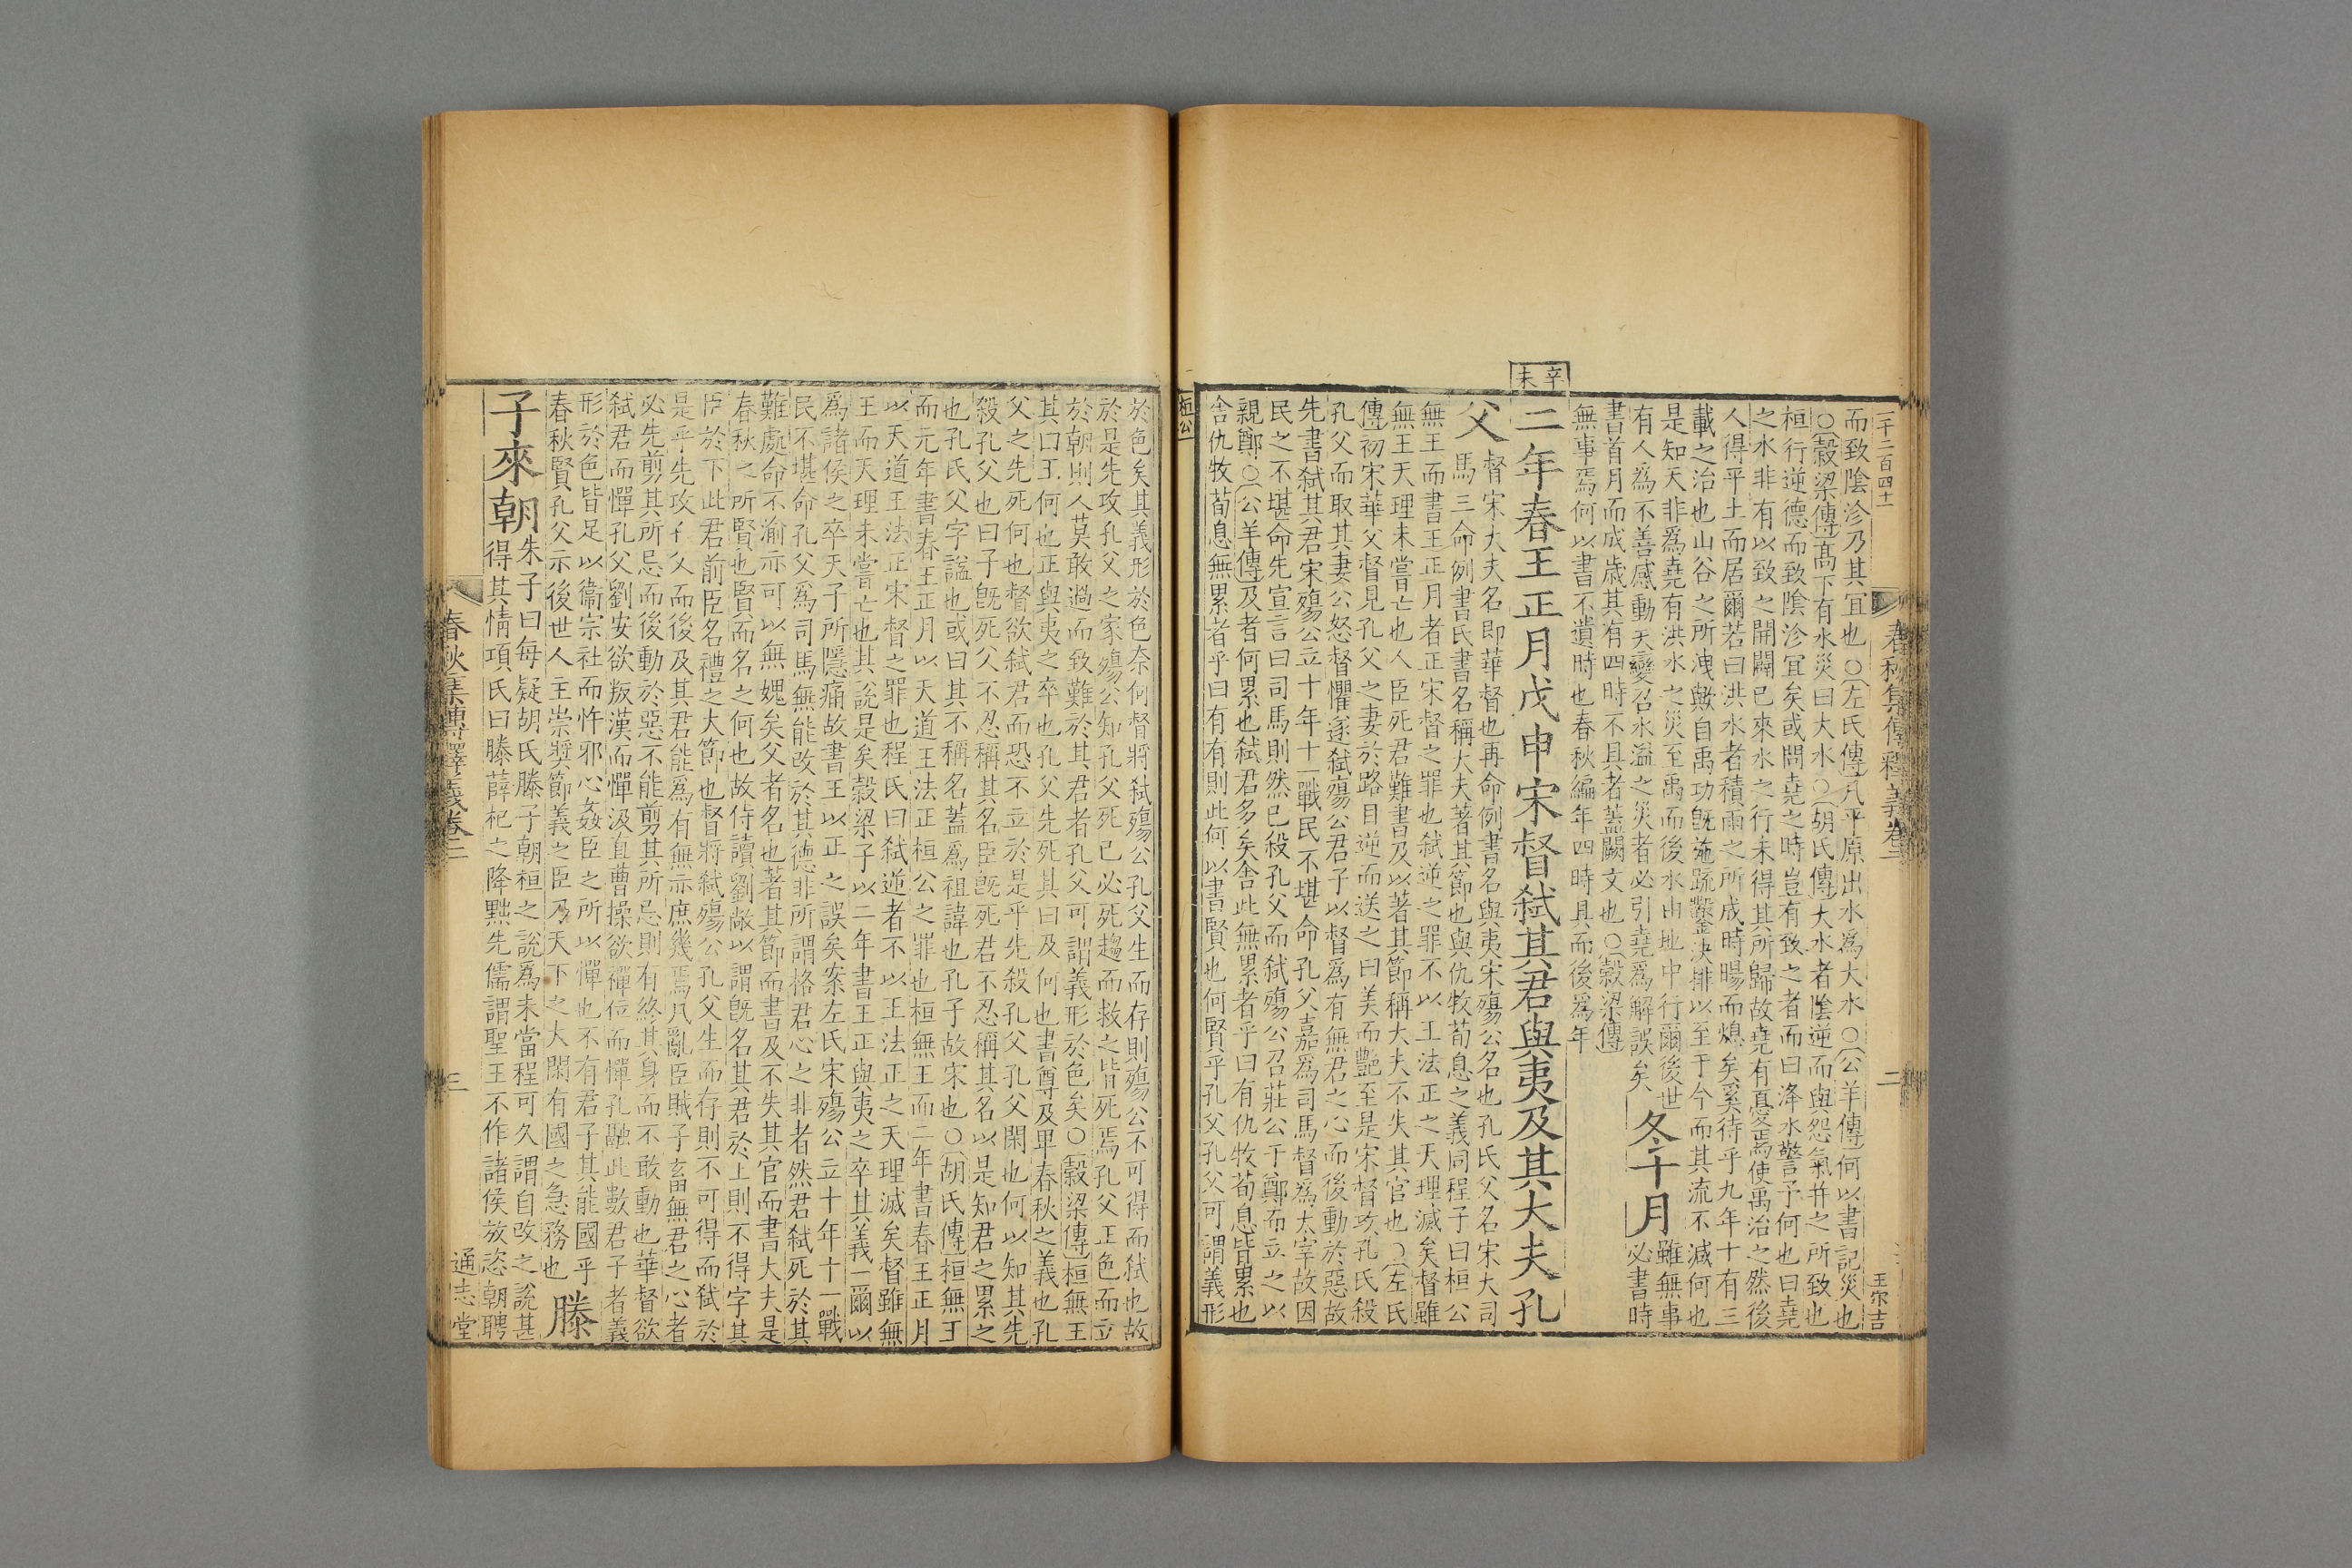 一千二百四十一
春秋集傳釋義卷二
二
王宗吉
而致陰沴乃其宜也○左氏傳凡平原出水爲大水○公羊傳何以書記災也
○穀梁傳高下有水災曰大水○胡氏傳大水者陰逆而與怨氣并之所致也
桓行逆德而致陰沴宜矣或問堯之時豈有致之者而曰洚水警予何也曰堯
之水非有以致之開闢已來水之行未得其所歸故堯有憂焉使禹治之然後
人得平土而居爾若曰洪水者積雨之所成時暘而熄矣奚待乎九年十有三
載之治也山谷之所洩歟自禹功旣施疏鑿決排以至于今而其流不減何也
是知天非爲堯有洪水之災至禹而後水由地中行爾後世
有人爲不善感動天變召水溢之災者必引堯爲解誤矣
冬十月
雖無事
必書時
書首月而成歲其有四時不具者蓋闕文也○穀梁傳
無事焉何以書不遺時也春秋編年四時具而後爲年
辛未
二年春王正月戊申宋督弑其君與夷及其大夫孔
父
督宋大夫名即華督也再命例書名與夷宋殤公名也孔氏父名宋大司
馬三命例書氏書名稱大夫著其節也與仇牧荀息之義同程子曰桓公
無王而書王正月者正宋督之罪也弑逆之罪不以王法正之天理滅矣督雖
無王天理未嘗亡也人臣死君難書及以著其節稱大夫不失其官也○左氏
傳初宋華父督見孔父之妻於路目逆而送之曰美而艷至是宋督攻孔氏殺
孔父而取其妻公怒督懼遂弑殤公君子以督爲有無君之心而後動於惡故
先書弑其君宋殤公立十年十一戰民不堪命孔父嘉爲司馬督爲太宰故因
民之不堪命先宣言曰司馬則然已殺孔父而弑殤公召莊公于鄭而立之以
親鄭○公羊傳及者何累也弑君多矣舍此無累者乎曰有仇牧荀息皆累也
舍仇牧荀息無累者乎曰有有則此何以書賢也何賢乎孔父孔父可謂義形
桓公
於色矣其義形於色奈何督將弑殤公孔父生而存則殤公不可得而弑也故
於是先攻孔父之家殤公知孔父死已必死趨而救之皆死焉孔父正色而立
於朝則人莫敢過而致難於其君者孔父可謂義形於色矣○穀梁傳桓無王
其曰王何也正與夷之卒也孔父先死其曰及何也書尊及卑春秋之義也孔
父之先死何也督欲弑君而恐不立於是乎先殺孔父孔父閑也何以知其先
殺孔父也曰子旣死父不忍稱其名臣旣死君不忍稱其名以是知君之累之
也孔氏父字諡也或曰其不稱名蓋爲祖諱也孔子故宋也○胡氏傳桓無王
而元年書春王正月以天道王法正桓公之罪也桓無王而二年書春王正月
以天道王法正宋督之罪也程氏曰弑逆者不以王法正之天理滅矣督雖無
王而天理未嘗亡也其說是矣穀梁子以二年書王正與夷之卒其義一爾以
爲諸侯之卒天子所隱痛故書王以正之誤矣案左氏宋殤公立十年十一戰
民不堪命孔父爲司馬無能改於其德非所謂格君心之非者然君弑死於其
難處命不渝亦可以無媿矣父者名也著其節而書及不失其官而書大夫是
春秋之所賢也賢而名之何也故侍讀劉敞以謂旣名其君於上則不得字其
臣於下此君前臣名禮之大節也督將弑殤公孔父生而存則不可得而弑於
是乎先攻孔父而後及其君能爲有無亦庶幾焉凡亂臣賊子畜無君之心者
必先剪其所忌而後動於惡不能剪其所忌則有終其身而不敢動也華督欲
弑君而憚孔父劉安欲叛漢而憚汲直曹操欲禪位而憚孔融此數君子者義
形於色皆足以衞宗社而忤邪心姦臣之所以憚也不有君子其能國乎
春秋賢孔父示後世人主崇奬節義之臣乃天下之大閑有國之急務也
滕
子來朝
朱子曰每疑胡氏滕子朝桓之說爲未當程可久謂自改之說甚
得其情項氏曰滕薛杞之降黜先儒謂聖王不作諸侯放恣朝聘
春秋集傳釋義卷二
三
通志堂